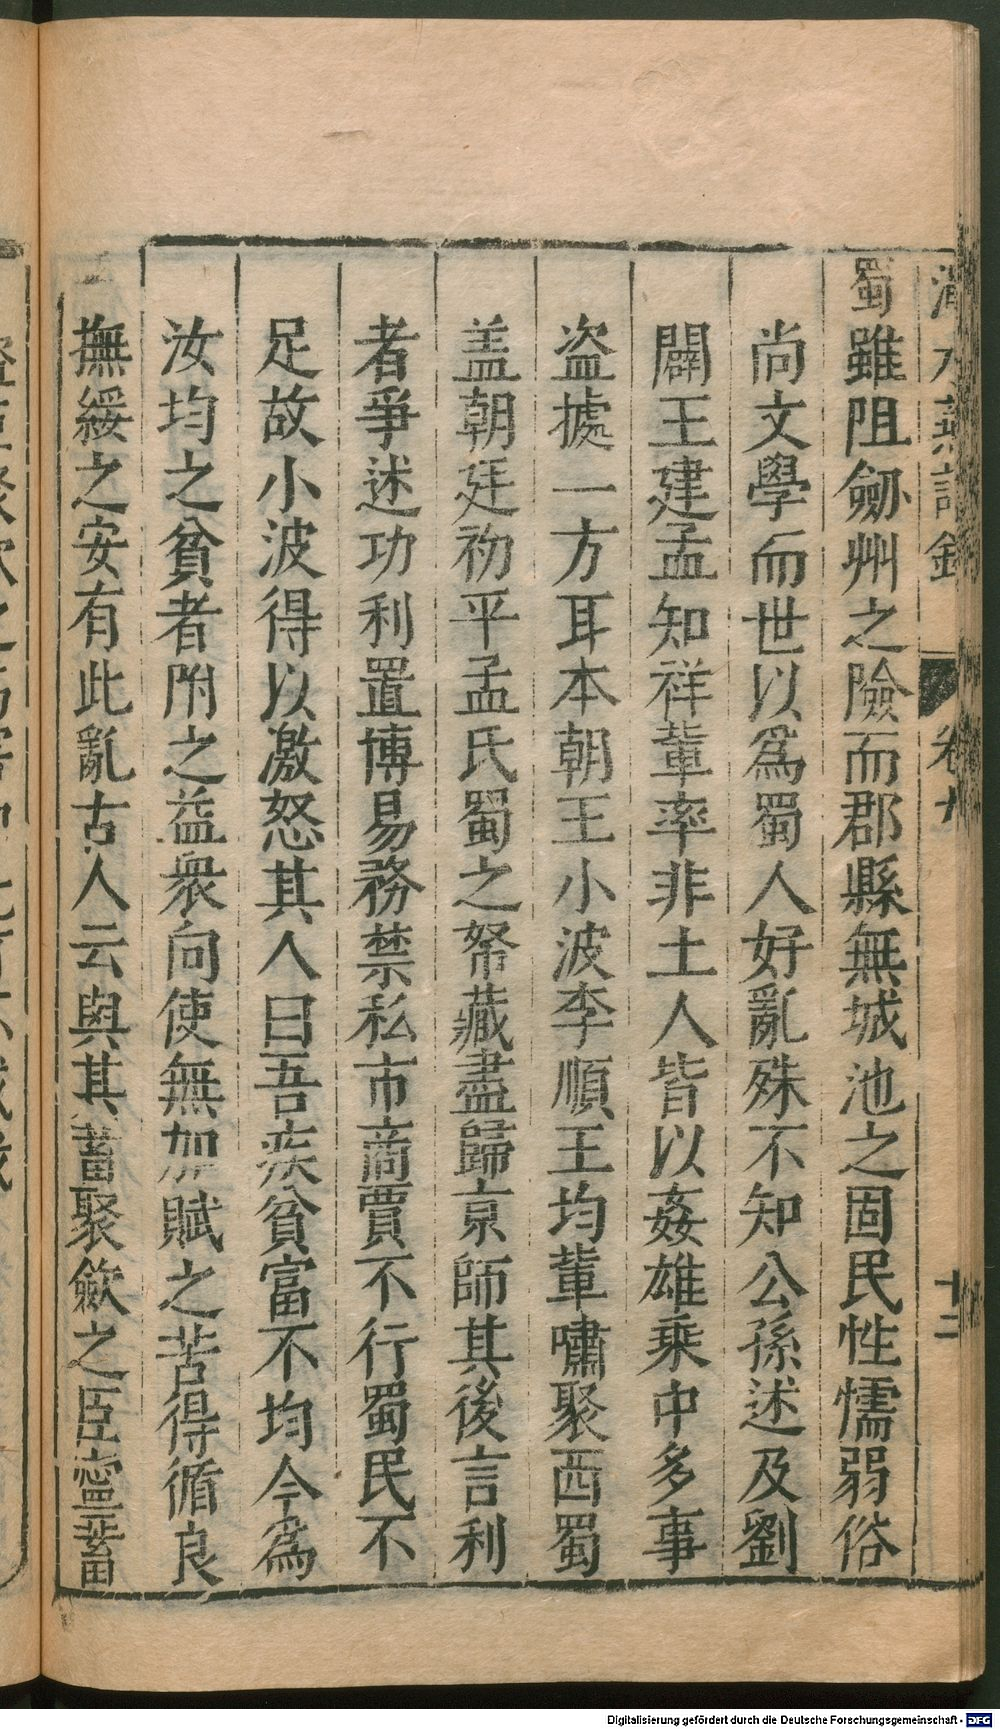 蜀雖阻劒州之險而郡縣無城池之固民性懦弱俗
尚文學而世以爲蜀人好亂殊不知公孫述及劉
闢王建孟知祥輩率非土人皆以姦雄乘中多事
盜據一方耳本朝王小波李順王均輩嘯聚西蜀
盖朝廷初平孟氏蜀之帑藏盡歸京師其後言利
者爭述功利置博易務禁私市商賈不行蜀民不
足故小波得以激怒其人曰吾疾貧富不均今爲
汝均之貧者附之益衆向使無加賦之苦得循良
撫綏之安有此亂古人云與其蓄聚歛之臣寧蓄
卷九
十二
Digitalisierung gefördert durch die Deutsche Forschungsgemeinschaft - DFG